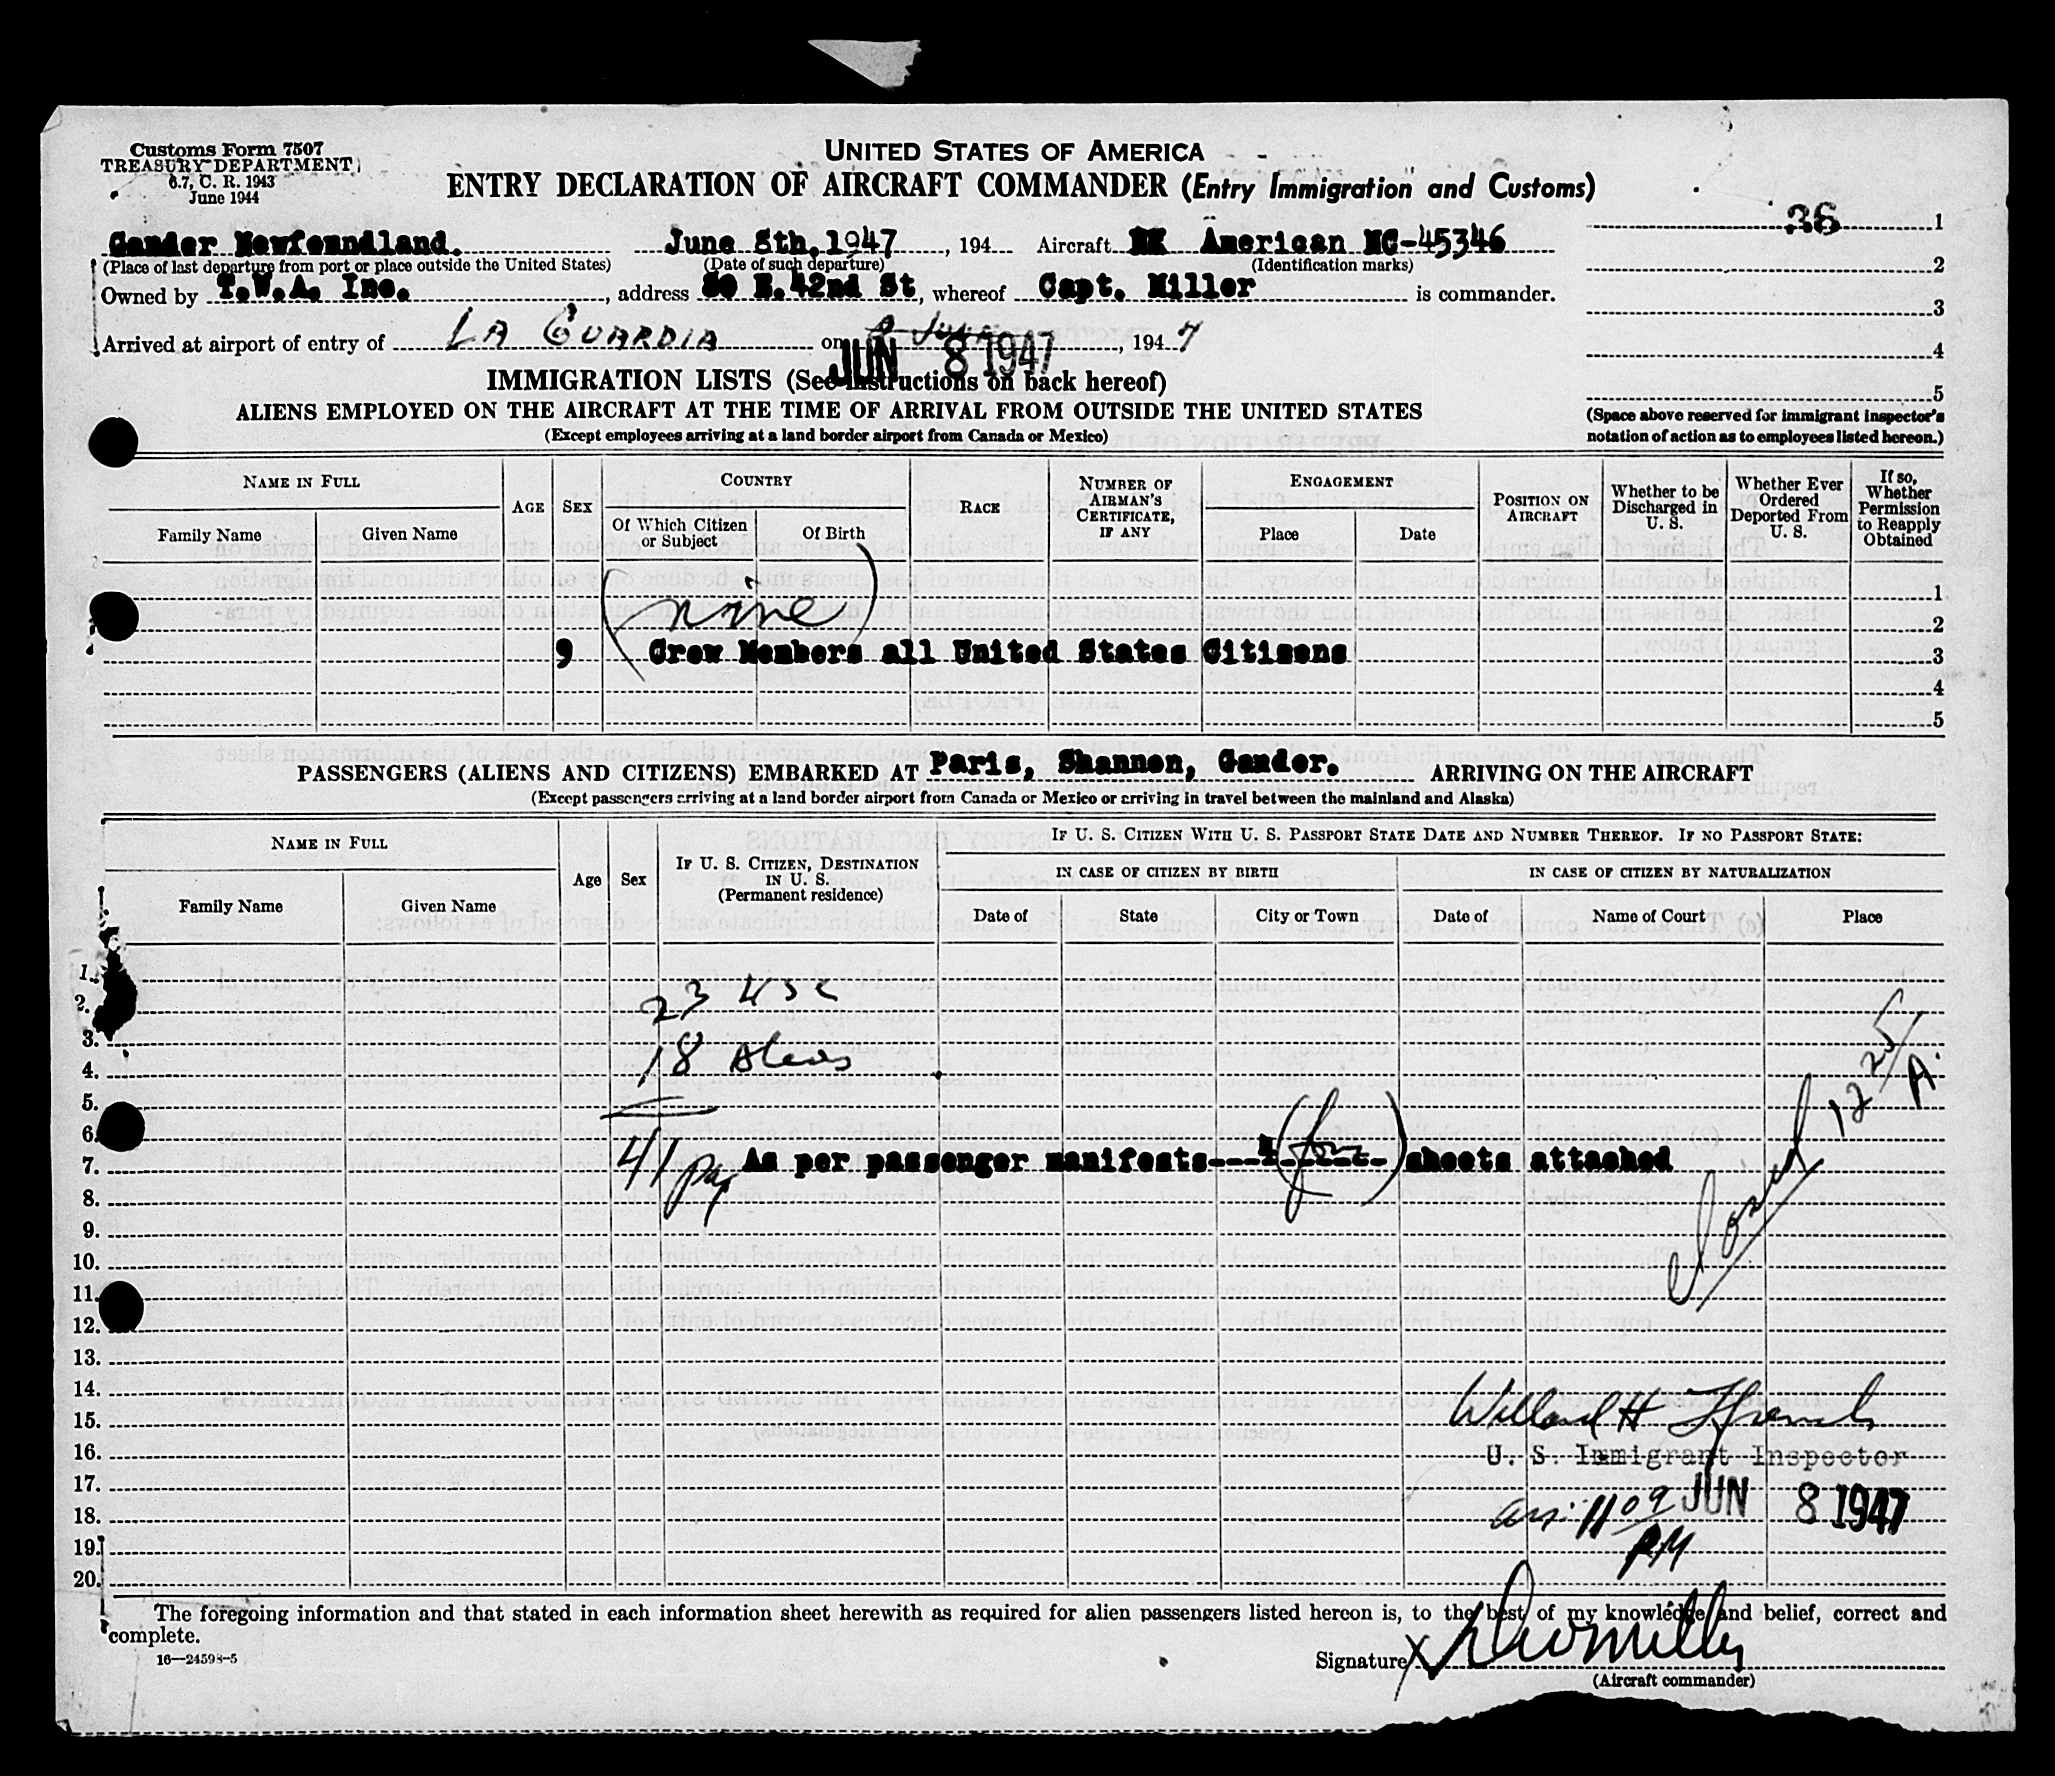 Customs Form 7507
TREASURY DEPARTMENT
6.7, C. R. 1943
June 1944
UNITED STATES OF AMERICA
ENTRY DECLARATION OF AIRCRAFT COMMANDER (Entry Immigration and Customs)
36 1
Gander Newfoundland. June 8th, 1947, 194 Aircraft American NC-45346
(Place of last departure from port or place outside the United States) (Date of such departure) (Identification marks)
2
Owned by T.W.A. Inc., address 80 E. 42nd St, whereof Capt. Miller is commander.
3
Arrived at airport of entry of LA GUARDIA on JUN 8 1947, 1947
4
IMMIGRATION LISTS (See instructions on back hereof)
5
ALIENS EMPLOYED ON THE AIRCRAFT AT THE TIME OF ARRIVAL FROM OUTSIDE THE UNITED STATES
(Except employees arriving at a land border airport from Canada or Mexico)
(Space above reserved for immigrant inspector's
notation of action as to employees listed hereon.)
NAME IN FULL
Family Name
Given Name
AGE
SEX
COUNTRY
Of Which Citizen
or Subject
Of Birth
RACE
NUMBER OF
AIRMAN'S
CERTIFICATE,
IF ANY
ENGAGEMENT
Place
Date
POSITION ON
AIRCRAFT
Whether to be
Discharged in
U. S.
Whether Ever
Ordered
Deported From
U. S.
If so,
Whether
Permission
to Reapply
Obtained
1
(nine) 2
9 Crew Members all United States Citizens 3
4
5
PASSENGERS (ALIENS AND CITIZENS) EMBARKED AT Paris, Shannon, Gander. ARRIVING ON THE AIRCRAFT
(Except passengers arriving at a land border airport from Canada or Mexico or arriving in travel between the mainland and Alaska)
NAME IN FULL
Family Name
Given Name
Age
Sex
IF U. S. CITIZEN, DESTINATION
IN U. S.
(Permanent residence)
IF U. S. CITIZEN WITH U. S. PASSPORT STATE DATE AND NUMBER THEREOF. IF NO PASSPORT STATE:
IN CASE OF CITIZEN BY BIRTH
Date of
State
City or Town
IN CASE OF CITIZEN BY NATURALIZATION
Date of
Name of Court
Place
1.
2. 23 USC
3.
4. 18 Aliens
5. 12 25/A.
6.
7. 41 As per passenger manifests---4(four)sheets attached
8.
9.
10.
11.
12.
13.
14.
15. Willard H French
16. U. S. Immigrant Inspector
17.
18. arr. 11 09 PM JUN 8 1947
19.
20.
The foregoing information and that stated in each information sheet herewith as required for alien passengers listed hereon is, to the best of my knowledge and belief, correct and
complete.
16—24598-5
Signature X
(Aircraft commander)